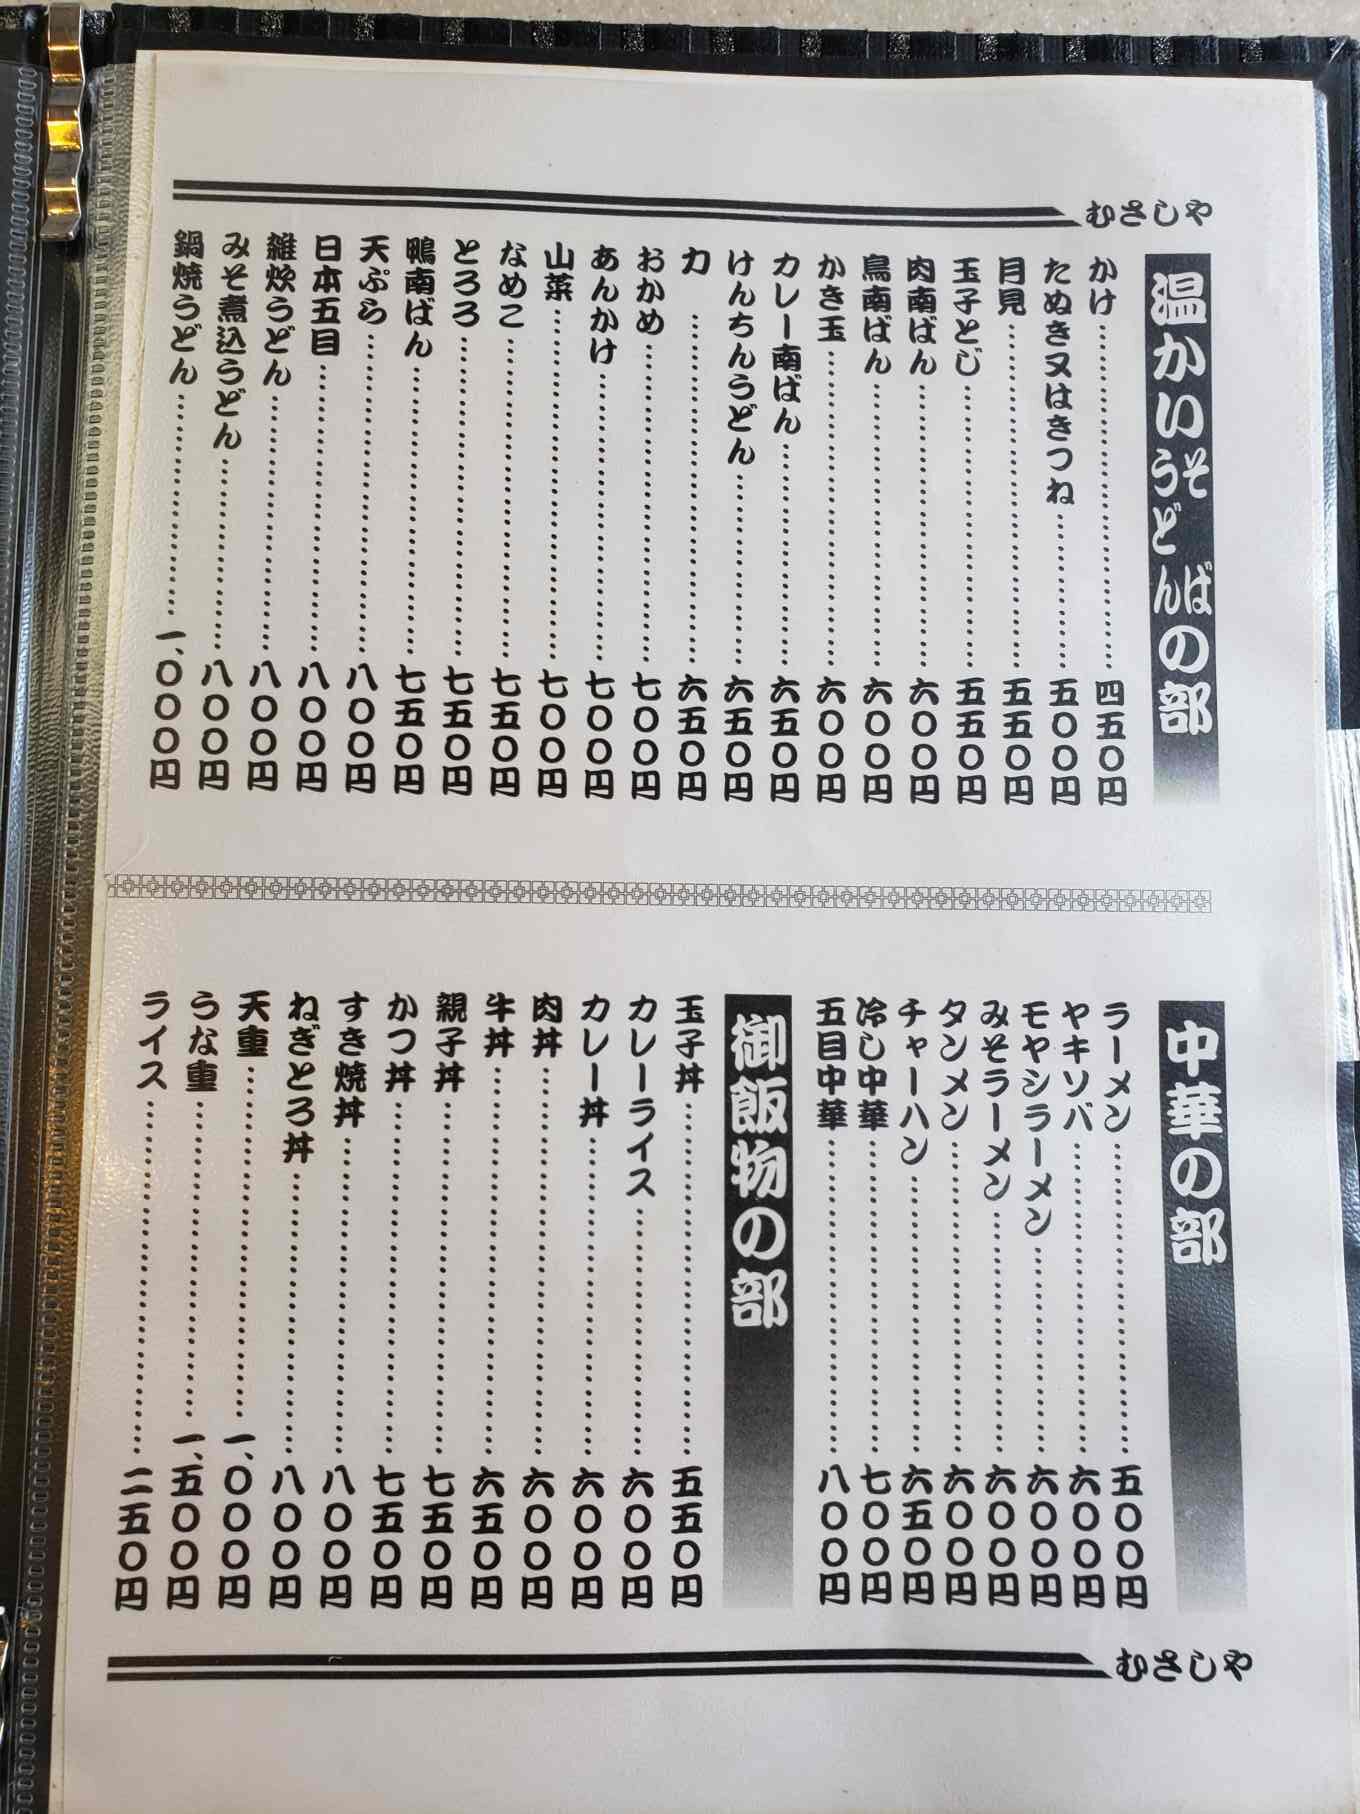 むさしや
温かいそばうどんの部
かけ……四五〇円
たぬき又はきつね……五〇〇円
月見……五五〇円
玉子とじ……五五〇円
肉南ばん……六〇〇円
鳥南ばん……六〇〇円
かき玉……六〇〇円
カレー南ばん……六五〇円
けんちんうどん……六五〇円
力……六五〇円
おかめ……七〇〇円
あんかけ……七〇〇円
山菜……七〇〇円
なめこ……七五〇円
とろろ……七五〇円
鴨南ばん……七五〇円
天ぷら……八〇〇円
日本五目……八〇〇円
雑炊うどん……八〇〇円
みそ煮込うどん……八〇〇円
鍋焼うどん……一、〇〇〇円
中華の部
ラーメン……五〇〇円
ヤキソバ……六〇〇円
モヤシラーメン……六〇〇円
みそラーメン……六〇〇円
タンメン……六〇〇円
チャーハン……六五〇円
冷し中華……七〇〇円
五目中華……八〇〇円
御飯物の部
玉子丼……五五〇円
カレーライス……六〇〇円
カレー丼……六〇〇円
肉丼……六〇〇円
牛丼……六五〇円
親子丼……七五〇円
かつ丼……七五〇円
すき焼丼……八〇〇円
ねぎとろ丼……八〇〇円
天重……一、〇〇〇円
うな重……一、五〇〇円
ライス……二五〇円
むさしや